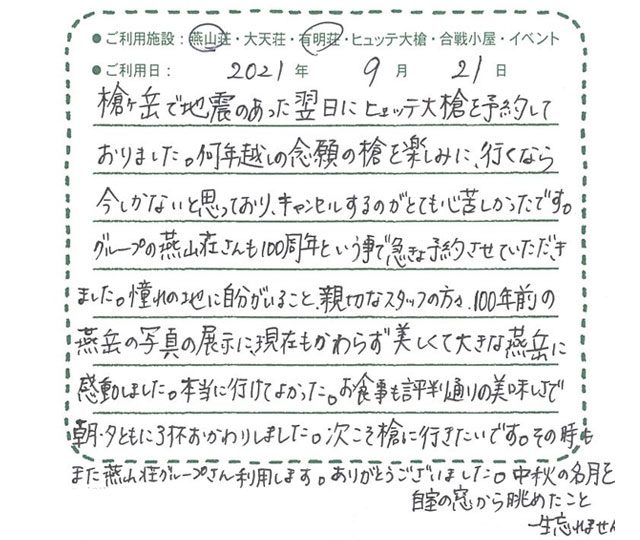 ●ご利用施設：燕山荘・大天荘・有明荘・ヒュッテ大槍・合戦小屋・イベント
●ご利用日：2021年 9月 21日
槍ヶ岳で地震のあった翌日にヒュッテ大槍を予約して
おりました。何年越しの念願の槍を楽しみに、行くなら
今しかないと思っており、キャンセルするのがとても心苦しかったです。
グループの燕山荘さんも100周年という事で急きょ予約させていただき
ました。憧れの地に自分がいること、親切なスタッフの方々、100年前の
燕岳の写真の展示に、現在もかわらず美しくて大きな燕岳に
感動しました。本当に行けてよかった。お食事も評判通りの美味しさで
朝・夕ともに3杯おかわりしました。次こそ槍に行きたいです。その時も
また燕山荘グループさん利用します。ありがとうございました。中秋の名月を
自室の窓から眺めたこと
一生忘れません